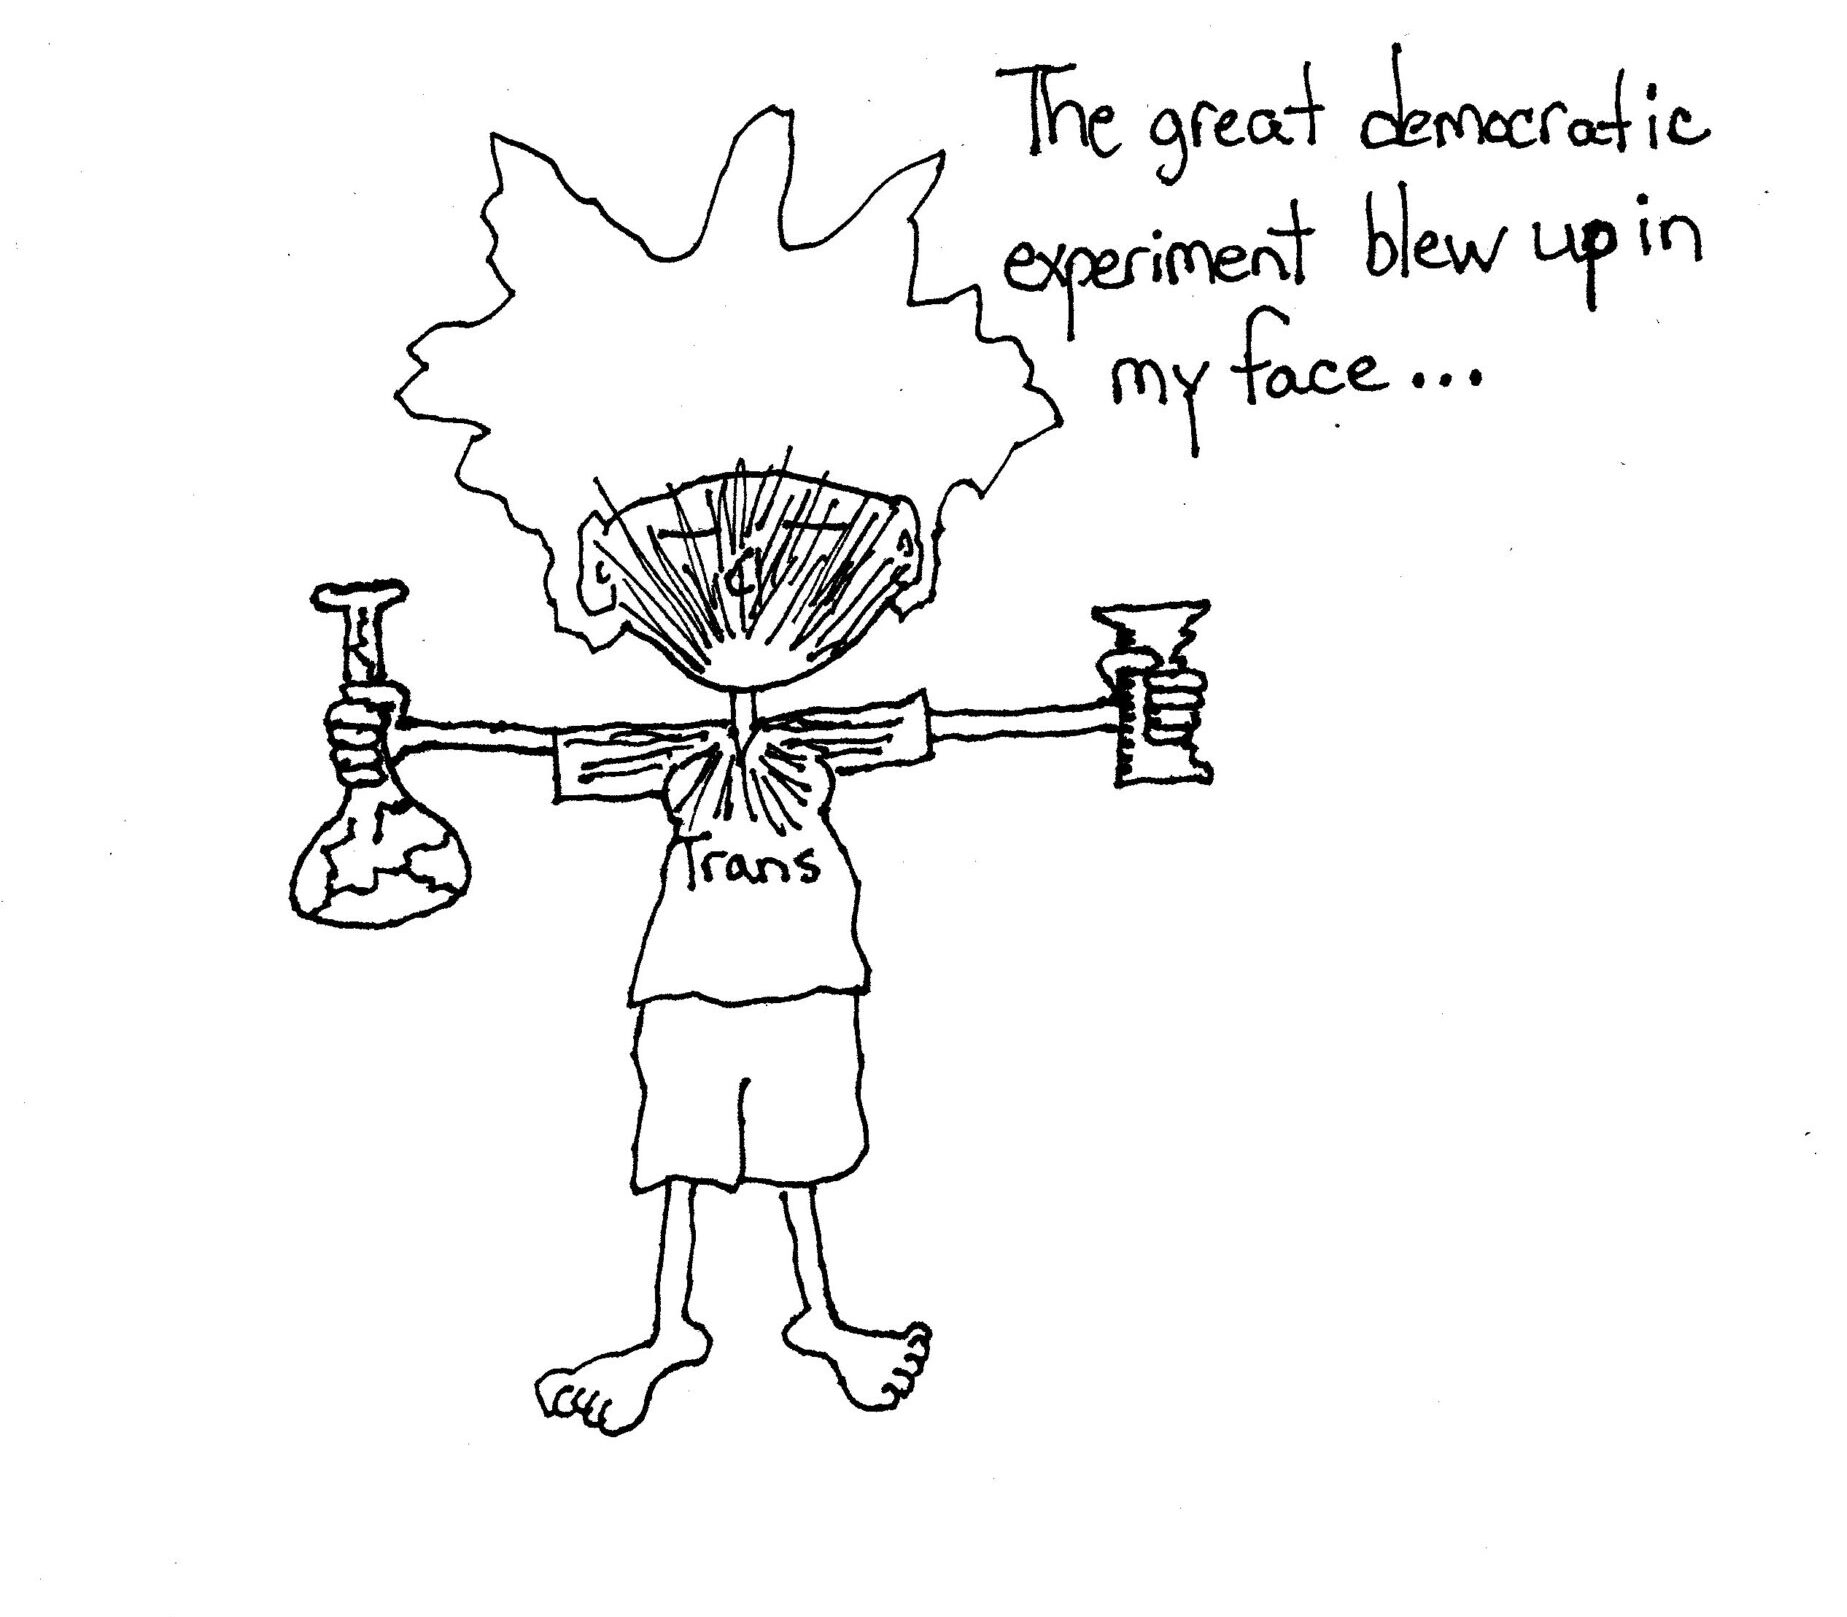 The great democratic
experiment blew up in
my face...
Trans